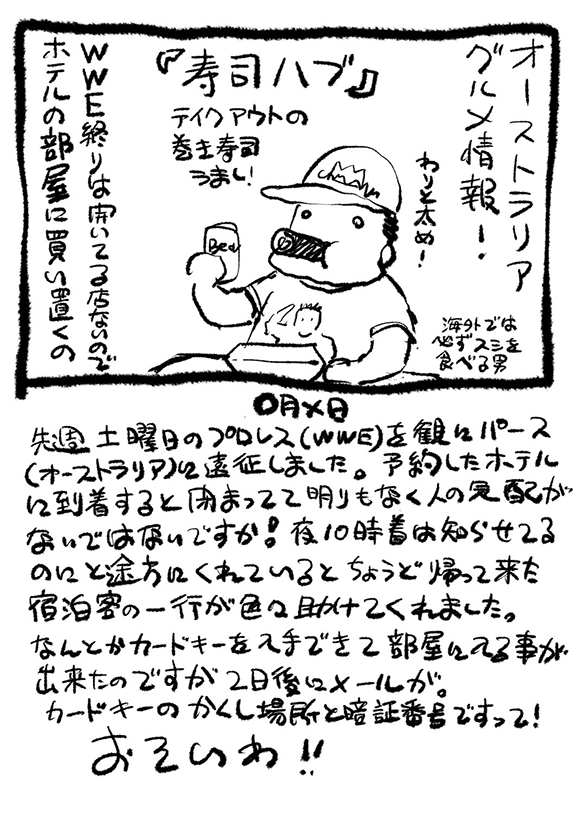 オーストラリア
グルメ情報！
『寿司ハブ』
テイクアウトの
巻き寿司
うまし！
わりと太め！
海外では
必ずスシを
食べる男
Beer
WWE終りは開いてる店ないので
ホテルの部屋に買い置くの
〇月×日
先週土曜日のプロレス(WWE)を観にパース
(オーストラリア)に遠征しました。予約したホテル
に到着すると閉まってて明りもなく人の気配が
ないではないですか！夜10時着は知らせてる
のにと途方にくれているとちょうど帰って来た
宿泊客の一行が色々助けてくれました。
なんとかカードキーを入手できて部屋に入る事が
出来たのですが2日後にメールが。
カードキーのかくし場所と暗証番号ですって！
おそいわ！！